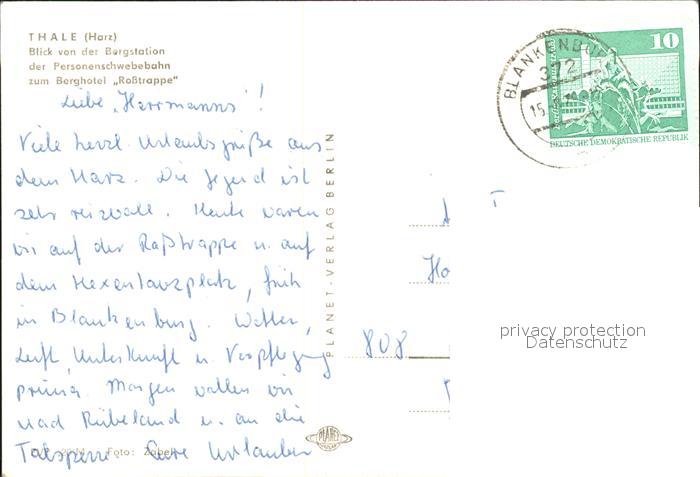 THALE (Harz)
Blick von der Bergstation
der Personenschwebebahn
zum Berghotel „Roßtrappe“
Liebe „Herrmanns“!
Viele herzl. Urlaubsgrüße aus
dem Harz. Die Gegend ist
sehr reizvoll. Heute waren
wir auf der Roßtrappe u. auf
dem Hexentanzplatz, früh
in Blankenburg. Wetter,
Luft, Unterkunft u. Verpflegung
prima. Morgen wollen wir
nach Rübeland u. an die
Talsperre. Eure Urlauber
Foto: Zobel
PLANET-VERLAG BERLIN
PLANET
BLANKENBURG
372
15
10
DEUTSCHE DEMOKRATISCHE REPUBLIK
Ho
808
privacy protection
Datenschutz